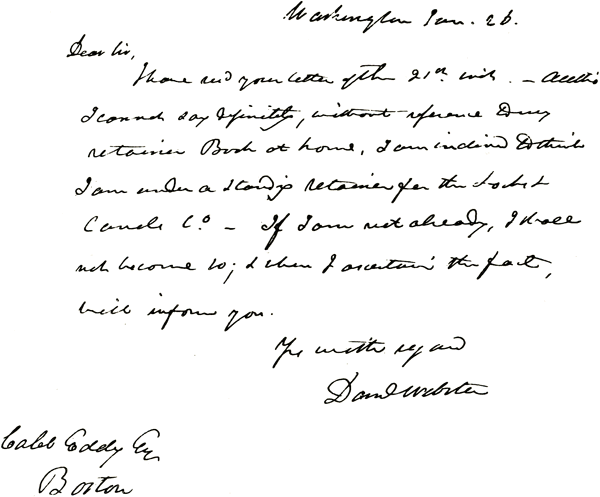 Washington Jan. 26.
Dear Sir,
I have recd your letter of the 21st inst. – Altho
I cannot say definitely, without reference to my
retainer Book at home, I am inclined to think
I am under a standing retainer for the Locks &
Canals Co – If I am not already, I shall
not become so; & when I ascertain the fact,
will inform you.
Yrs with regard
Danl Webster
Caleb Eddy Esq
Boston